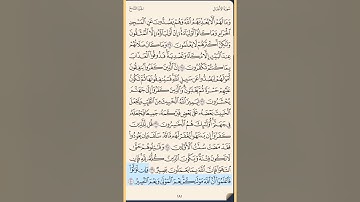 سورة الأنفال الجزء التاسع
وَمَا لَهُمْ أَلَّا يُعَذِّبَهُمُ ٱللَّهُ وَهُمْ يَصُدُّونَ عَنِ ٱلْمَسْجِدِ
ٱلْحَرَامِ وَمَا كَانُوٓا۟ أَوْلِيَآءَهُۥٓ إِنْ أَوْلِيَآؤُهُۥٓ إِلَّا ٱلْمُتَّقُونَ
وَلَٰكِنَّ أَكْثَرَهُمْ لَا يَعْلَمُونَ ۝٣٤ وَمَا كَانَ صَلَاتُهُمْ
عِندَ ٱلْبَيْتِ إِلَّا مُكَآءً وَتَصْدِيَةً فَذُوقُوا۟ ٱلْعَذَابَ
بِمَا كُنتُمْ تَكْفُرُونَ ۝٣٥ إِنَّ ٱلَّذِينَ كَفَرُوا۟ يُنفِقُونَ
أَمْوَٰلَهُمْ لِيَصُدُّوا۟ عَن سَبِيلِ ٱللَّهِ فَسَيُنفِقُونَهَا ثُمَّ تَكُونُ
عَلَيْهِمْ حَسْرَةً ثُمَّ يُغْلَبُونَ وَٱلَّذِينَ كَفَرُوٓا۟ إِلَىٰ جَهَنَّمَ
يُحْشَرُونَ ۝٣٦ لِيَمِيزَ ٱللَّهُ ٱلْخَبِيثَ مِنَ ٱلطَّيِّبِ وَيَجْعَلَ
ٱلْخَبِيثَ بَعْضَهُۥ عَلَىٰ بَعْضٍ فَيَرْكُمَهُۥ جَمِيعًا فَيَجْعَلَهُۥ
فِى جَهَنَّمَ أُو۟لَٰٓئِكَ هُمُ ٱلْخَٰسِرُونَ ۝٣٧ قُل لِّلَّذِينَ
كَفَرُوٓا۟ إِن يَنتَهُوا۟ يُغْفَرْ لَهُم مَّا قَدْ سَلَفَ وَإِن يَعُودُوا۟
فَقَدْ مَضَتْ سُنَّتُ ٱلْأَوَّلِينَ ۝٣٨ وَقَٰتِلُوهُمْ حَتَّىٰ
لَا تَكُونَ فِتْنَةٌ وَيَكُونَ ٱلدِّينُ كُلُّهُۥ لِلَّهِ فَإِنِ
ٱنتَهَوْا۟ فَإِنَّ ٱللَّهَ بِمَا يَعْمَلُونَ بَصِيرٌ ۝٣٩ وَإِن تَوَلَّوْا۟
فَٱعْلَمُوٓا۟ أَنَّ ٱللَّهَ مَوْلَىٰكُمْ نِعْمَ ٱلْمَوْلَىٰ وَنِعْمَ ٱلنَّصِيرُ ۝٤٠
١٨١